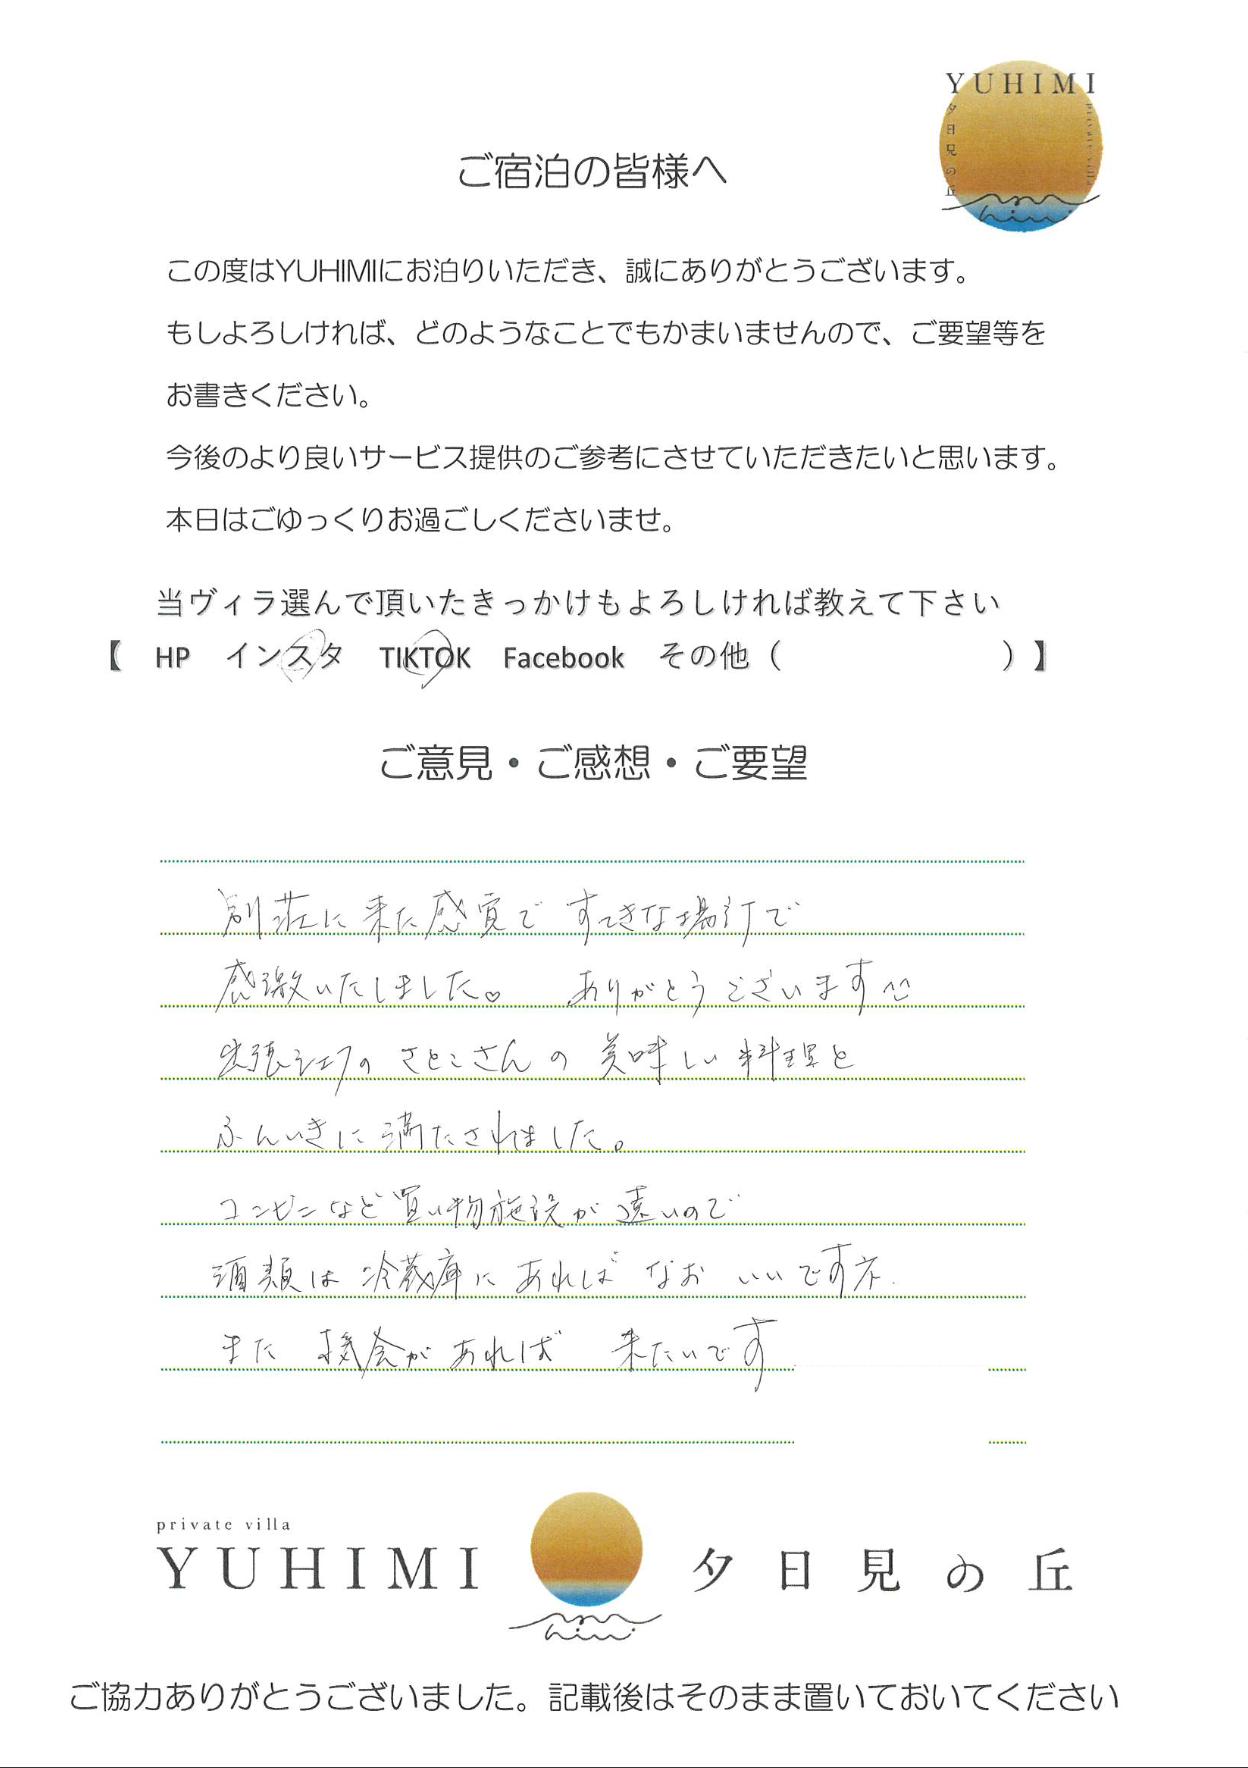 YUHIMI
夕日見の丘
private villa
ご宿泊の皆様へ
この度はYUHIMIにお泊りいただき、誠にありがとうございます。
もしよろしければ、どのようなことでもかまいませんので、ご要望等を
お書きください。
今後のより良いサービス提供のご参考にさせていただきたいと思います。
本日はごゆっくりお過ごしくださいませ。
当ヴィラ選んで頂いたきっかけもよろしければ教えて下さい
【 HP インスタ TIKTOK Facebook その他（ ）】
ご意見・ご感想・ご要望
別荘に来た感覚で すてきな場所で
感激いたしました。 ありがとうございます
出張シェフの さとこさんの 美味しい料理と
ふんいきに満たされました。
コンビニなど買い物施設が遠いので
酒類は冷蔵庫にあれば なお いいですネ.
また 機会があれば 来たいです
private villa
YUHIMI 夕日見の丘
ご協力ありがとうございました。記載後はそのまま置いておいてください